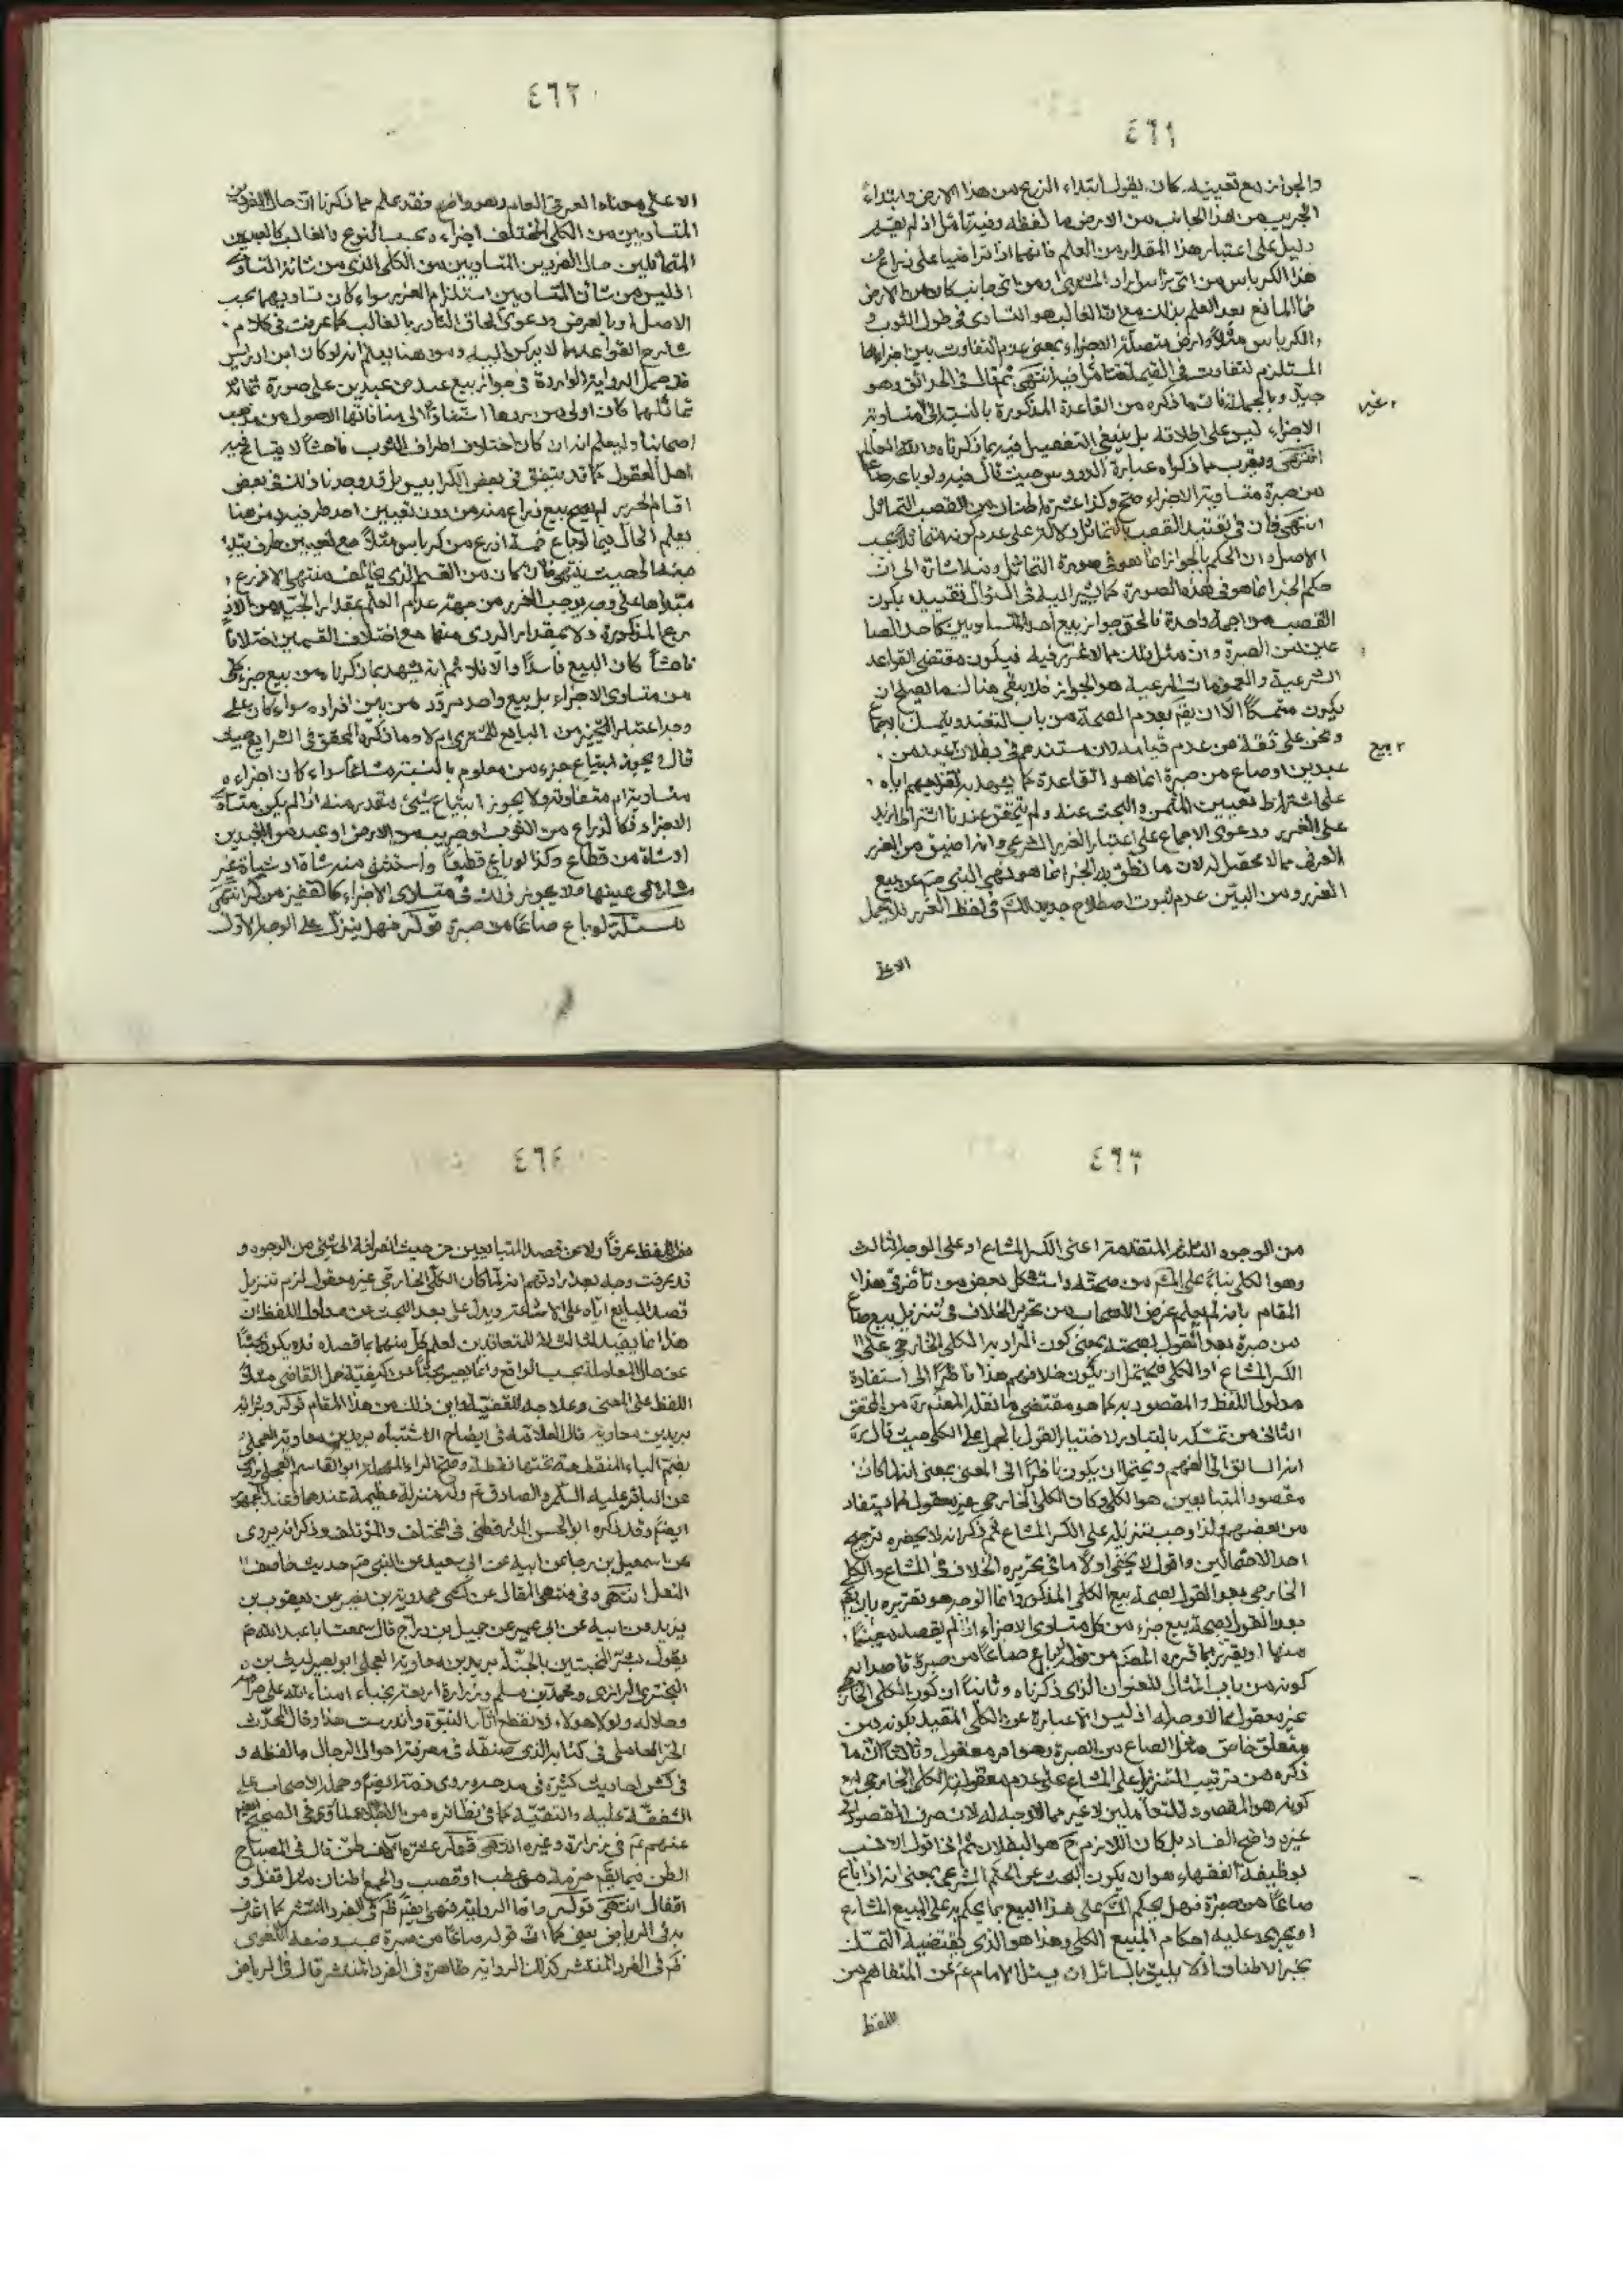 ٤٦١
والجواز مع تعيينه كان يقول ابتداء الزرع من هذا الارض وابتداء
الجريب من هذا الجانب من الارض ما لفظه وفيه تأمل اذ لم يقم
دليل على اعتبار هذا المقدار من العلم فانهما اذا تراضيا على ذراع من
هذا الكرباس من اي رأس اراد المشتري ومن اي جانب كان من الارض
فما المانع بعد العلم بذلك مع ان الغالب هو التساوى في طول الثوب و
الكرباس مثلاً وارض متصلة الاجزاء بمعنى عدم التفاوت بين اجزائها
المستلزم لتفاوت في القيمة فتأمل فيه انتهى ثم قال في الحدائق وهو
جيد وبالجملة فان ما ذكره من القاعدة المذكورة بالنسبة الى متساوية
الاجزاء ليس على اطلاقه بل ينبغي التفصيل فيه بما ذكرناه والله العالم
انتهى ويقرب مما ذكراه عبارة الدروس حيث قال فيه ولو باع صاعا
من صبرة متساوية الاجزاء صح وكذا عشرة اطنان من القصب المتماثل
انتهى فان في تقييد القصب بالتماثل دلالة على عدم كونه متماثلاً بحسب
الاصل وان الحكم بالجواز انما هو في صورة التماثل ومنه اشارة الى ان
حكم الخبر انما هو في هذه الصورة كما يشير اليه في السؤال تقييده بكون
القصب من اجمة واحدة فالحق جواز بيع احد المتساويين كاحد الصا
عين من الصبرة وان مثل ذلك مما لا غرر فيه فيكون مقتضى القواعد
الشرعية والعمومات المرعية هو الجواز فلا يبقى هنا لنا ما يصلح ان
يكون متمسكاً الا ان يقم بعدم الصحة من باب التعبد ويتمسك بالاجماع
ونحن على ثقة من عدم قيامه لان مستندهم في بطلان عبد من
عبدين او صاع من صبرة انما هو القاعدة كما يشهد به تفريعهم اياه
على اشتراط تعيين المثمن والبحث عنه ولم يتحقق عندنا اشتراط ازيد
على الغرر ودعوى الاجماع على اعتبار الغرر الشرعي وانه اضيق من الغرر
العرفي مما لا محصل له لان ما نطق به الخبر انما هو نهى النبي ص عن بيع
الغرر ومن البين عدم ثبوت اصطلاح جديد للشرع في لفظ الغرر فلا يحمل
الا على
غير
بيع
٤٦٢
الا على معناه العرفي العام وهو واضح فقد علم مما ذكرنا ان حال الفردين
المتساويين من الكلي المختلف اجزاءه بحسب النوع والغالب كالعبدين
المتماثلين حال الفردين المتساويين من الكلي الذي من شأنه التساوى
اذ ليس من شأن المتساويين استلزام الغرر سواء كان تساويهما بحسب
الاصل او بالعرض ودعوى الحاق النادر بالغالب كما عرفت في كلام
شارح القواعد مما لا يركن اليه ومن هنا يعلم انه لو كان ابن ادريس
قد حمل الرواية الواردة في جواز بيع عبد من عبدين على صورة تماثلا
تماثلهما كان اولى من ردها استناداً الى منافاتها الاصول من مذهب
اصحابنا وليعلم انه ان كان اختلاف اطراف الثوب فاحشاً لا يتسامح فيه
اهل العقول كما قد يتفق في بعض الكرابيس بل قد وجدنا ذلك في بعض
اقسام الحرير لم يصح بيع ذراع منه من دون تعيين احد طرفيه ومن هنا
يعلم الحال فيما لو باع خمسة اذرع من كرباس مثلاً مع تعيين طرف مبتدا
مبتداها على وجه يوجب الغرر من جهة عدم العلم بمقدار الجيد من الاذ
رع المذكورة ولا بمقدار الردى منها مع اختلاف القسمين اختلافاً
فاحشاً كان البيع فاسداً والا فلا ثم انه يشهد بما ذكرناه من بيع جزء كلي
من متساوى الاجزاء بل بيع واحد مردد من بين افراده سواء كان على
وجه اعتبار التخيير من البايع للمشترى ام لا وما ذكره المحقق في الشرايع حيث
قال ويجوز ابتياع جزء من معلوم بالنسبة مشاعاً سواء كان اجزاءه
متساوية ام متفاوتة ولا يجوز ابتياع شئ مقدر منه اذا لم يكن متساوى
الاجزاء كالذراع من الثوب او جريب من الارض او عبد من العبدين
او شاة من قطاع وكذا لو باع قطيعاً واستثنى منه شاة او شياة غير
مشار الى عينها ولا يجوز ذلك في متساوى الاجزاء كالقفيز من كر انتهى
مسئلة لو باع صاعا من صبرة قوله فهل ينزل على الوجه الاول
٤٦٣
من الوجوه الثلثة المتقدمة اعنى الكسر المشاع او على الوجه الثالث
وهو الكلي بناءً على المشهور من صحته واستشكل بعض من تأخر في هذا
المقام بانه لم يعلم غرض الاصحاب من تحرير الخلاف في تنزيل بيع صاع
من صبرة بعد القول بصحته بمعنى كون المراد به الكلي الخارجي على
الكسر المشاع او الكلي فيحتمل ان يكون خلافهم هذا ناظراً الى استفادة
مدلول اللفظ والمقصود به كما هو مقتضى ما نقله المصنف ره من المحقق
الثاني من تمسكه بالتبادر لاختيار القول بالحمل على الكلي حيث قال ره
انه السابق الى الفهم ويحتمل ان يكون ناظراً الى المعنى بمعنى انه لما كان
مقصود المتبايعين هو الكلي وكان الكلي الخارجي غير معقول كما يستفاد
من بعضهم ولذا وجب تنزيله على الكسر المشاع ثم ذكر انه لا يحضره ترجيح
احد الاحتمالين واقول لا يخفى اولاً ما في تحريره الخلاف في المشاع والكلي
الخارجي بعد القول بصحة بيع الكلي المذكور وانما الوجه هو تقريره بان يقم
بعد القول بصحة بيع جزء من كل متساوى الاجزاء اذا لم يقصد معيناً
منها او تقريره بما قرره المصنف من قوله لو باع صاعاً من صبرة قاصدا به
كونه من باب المثال للعنوان الذي ذكرناه وثانياً ان كون الكلي الخارجي
غير معقول مما لا وجه له اذ ليس الا عبارة عن الكلي المقيد بكونه من
متعلق خاص مثل الصاع من الصبرة وهو امر معقول وثالثاً ان ما
ذكره من ترتيب التنزيل على المشاع على عدم معقولية الكلي الخارجي مع
كونه هو المقصود للمتعاملين لا غير مما لا وجه له لان صرف المقصود الى
غيره واضح الفساد بل كان اللازم ح هو البطلان ثم اني اقول الانسب
بوظيفة الفقهاء هو ان يكون البحث عن الحكم الشرعي بمعنى انه اذا باع
صاعاً من صبرة فهل يحكم الشرع على هذا البيع بما يحكم به على المبيع المشاع
او يجرى عليه احكام المبيع الكلي وهذا هو الذي يقتضيه التمسك
بخبر الاطنان اذ لا يليق بالسائل ان يسئل الامام ع عن المتفاهم من
اللفظ
٤٦٤
هذا اللفظ عرفاً ولا عن قصد المتبايعين من حيث انصرافه الى شئ من الوجوه و
قد عرفت وجه بعد ارادتهم انه لما كان الكلي الخارجي غير معقول لزم تنزيل
قصد البايع اياه على الاشاعة ويدل على بعد البحث عن مدلول اللفظ ان
هذا انما يفيد لثالث المتعاقدين لعلم كل منهما بما قصده فلا يكون بحثاً
عن حال المعاملة بحسب الواقع وانما يصير بحثاً عن كيفية حمل القاضي مثلاً
اللفظ على المعنى وعلاجه للقضية واين ذلك من هذا المقام قوله ورواية
بريد بن معاوية قال العلامة في ايضاح الاشتباه بريد بن معاوية العجلي
بضم الباء المنقطة تحتها نقطة وفتح الراء المهملة ابو القاسم العجلي روى
عن الباقر عليه السلم والصادق ع وله منزلة عظيمة عندهما وعند الجمهور
ايضاً وقد ذكره ابو الحسن الدارقطني في المختلف والمؤتلف وذكر انه يروى
عن اسمعيل بن رجا عن ابيه عن ابي سعيد عن النبي ص حديث خاصف
النعل انتهى وفي منتهى المقال عن كش حمدويه بن نصير عن يعقوب بن
يزيد عن ابن ابي عمير عن جميل بن دراج قال سمعت ابا عبد الله ع
يقول بشر المخبتين بالجنة بريد بن معاوية العجلي ابو بصير ليث بن
البختري المرادى ومحمد بن مسلم وزرارة اربعة نجباء امناء الله على حرامه
وحلاله ولولا هولاء لانقطع آثار النبوة واندرست هذا وقال المحدث
الحر العاملي في كتابه الذي صنفه في معرفة احوال الرجال ما لفظه و
في كش احاديث كثيرة في مدحه وروى ذمه ايضاً وحمله الاصحاب على
الشفقة عليه والتقية كما في نظائره من الاجلاء لما روى في الصحيح
عنهم ع في زرارة وغيره انتهى قوله عشرة آلاف طن قال في المصباح
الطن فيما يقم حزمة من حطب او قصب والجمع اطنان مثل قفل و
اقفال انتهى قوله واما الرواية فهي ايضاً ظ في الفرد المنتشر كما اعترف
به في الرياض يعني كما ان قوله صاعاً من صبرة بحسب وضعه اللغوى
ظ في الفرد المنتشر كذلك الرواية ظاهرة في الفرد المنتشر قال في الرياض